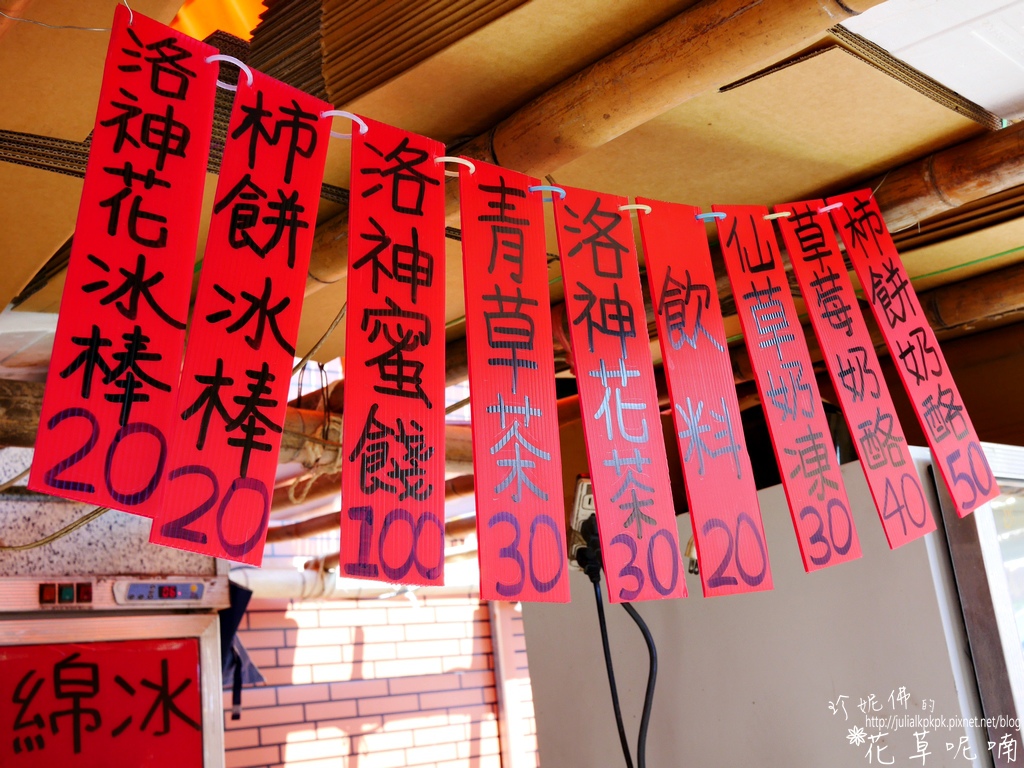 洛神花冰棒20
柿餅冰棒20
洛神蜜餞100
青草茶30
洛神花茶30
飲料20
仙草奶凍30
草莓奶酪40
柿餅奶酪50
綿冰
珍妮佛的
http://julialkpkpk.pixnet.net/blog
花草呢喃